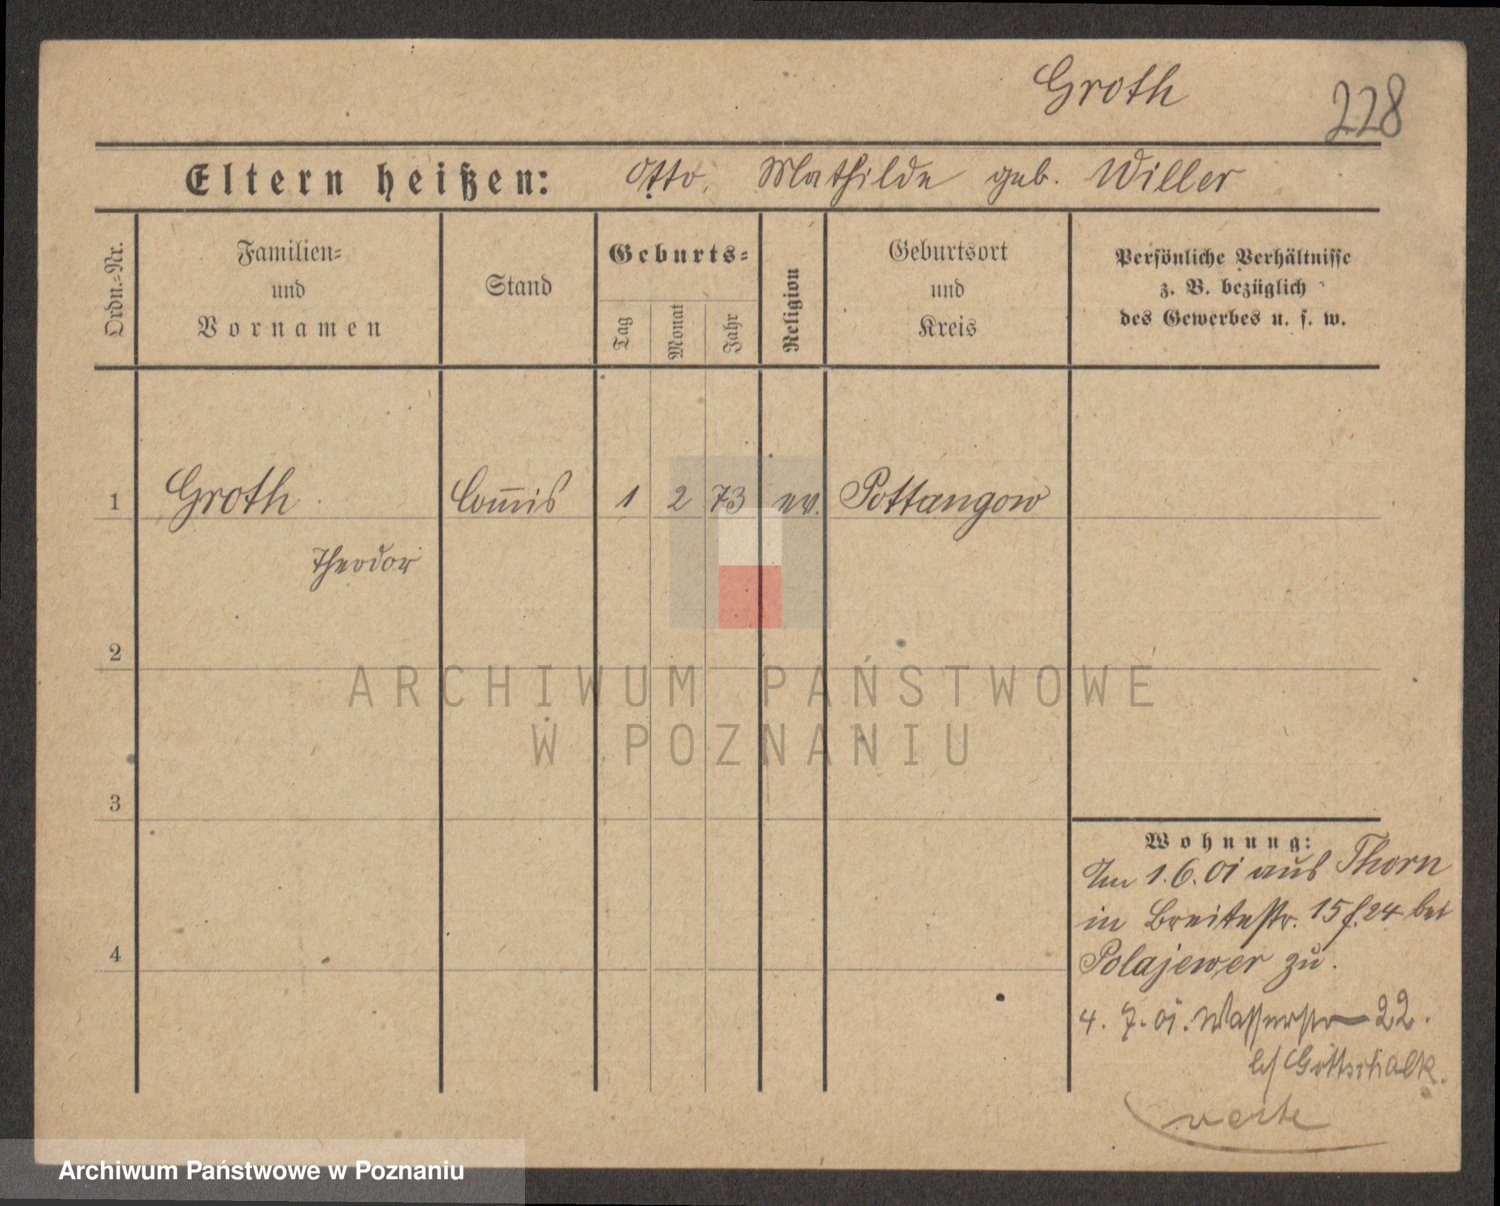 Groth
228
Eltern heißen: Otto, Mathilde geb. Willer
Ordn.-Nr.
Familien-
und
Vornamen
Stand
Geburts-
Tag
Monat
Jahr
Religion
Geburtsort
und
Kreis
Persönliche Verhältnisse
z. B. bezüglich
des Gewerbes u. s. w.
1 Groth Com̅is 1 2 73 ev. Pottangow
Theodor
2
3
4
ARCHIWUM PAŃSTWOWE
W POZNANIU
Wohnung:
Am 1.6.01 aus Thorn
in Breitestr. 15 f. 24 bei
Polajewer zu.
4. 7. 01. Wasserstr 22.
b/ Gottschalk.
verte
Archiwum Państwowe w Poznaniu